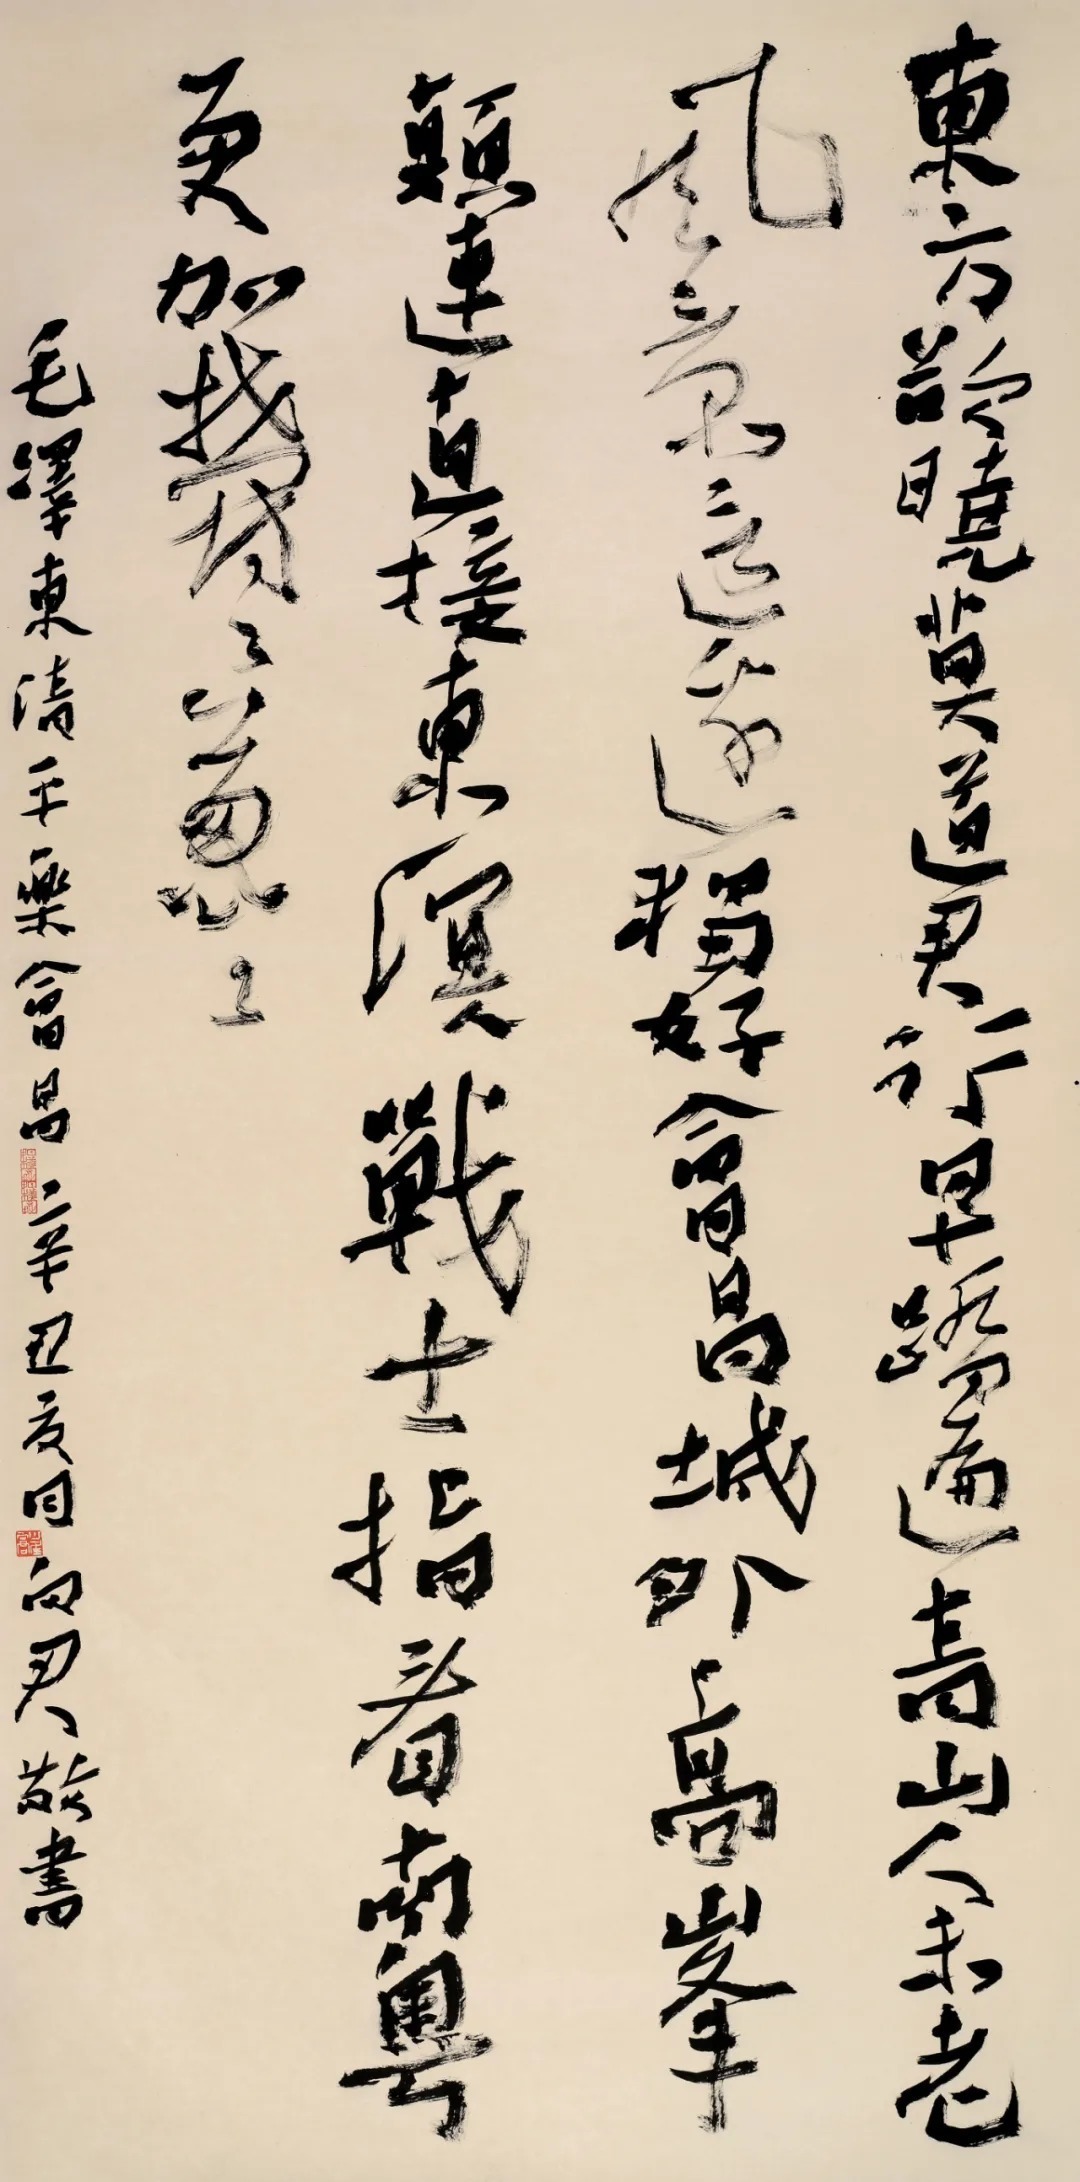 東方欲曉莫道君行早踏遍青山人未老
風景這邊獨好會昌城外高峯
顛連直接東溟戰士指看南粵
更加鬱々蔥々
毛澤東清平樂會昌辛丑夏月向君敬書